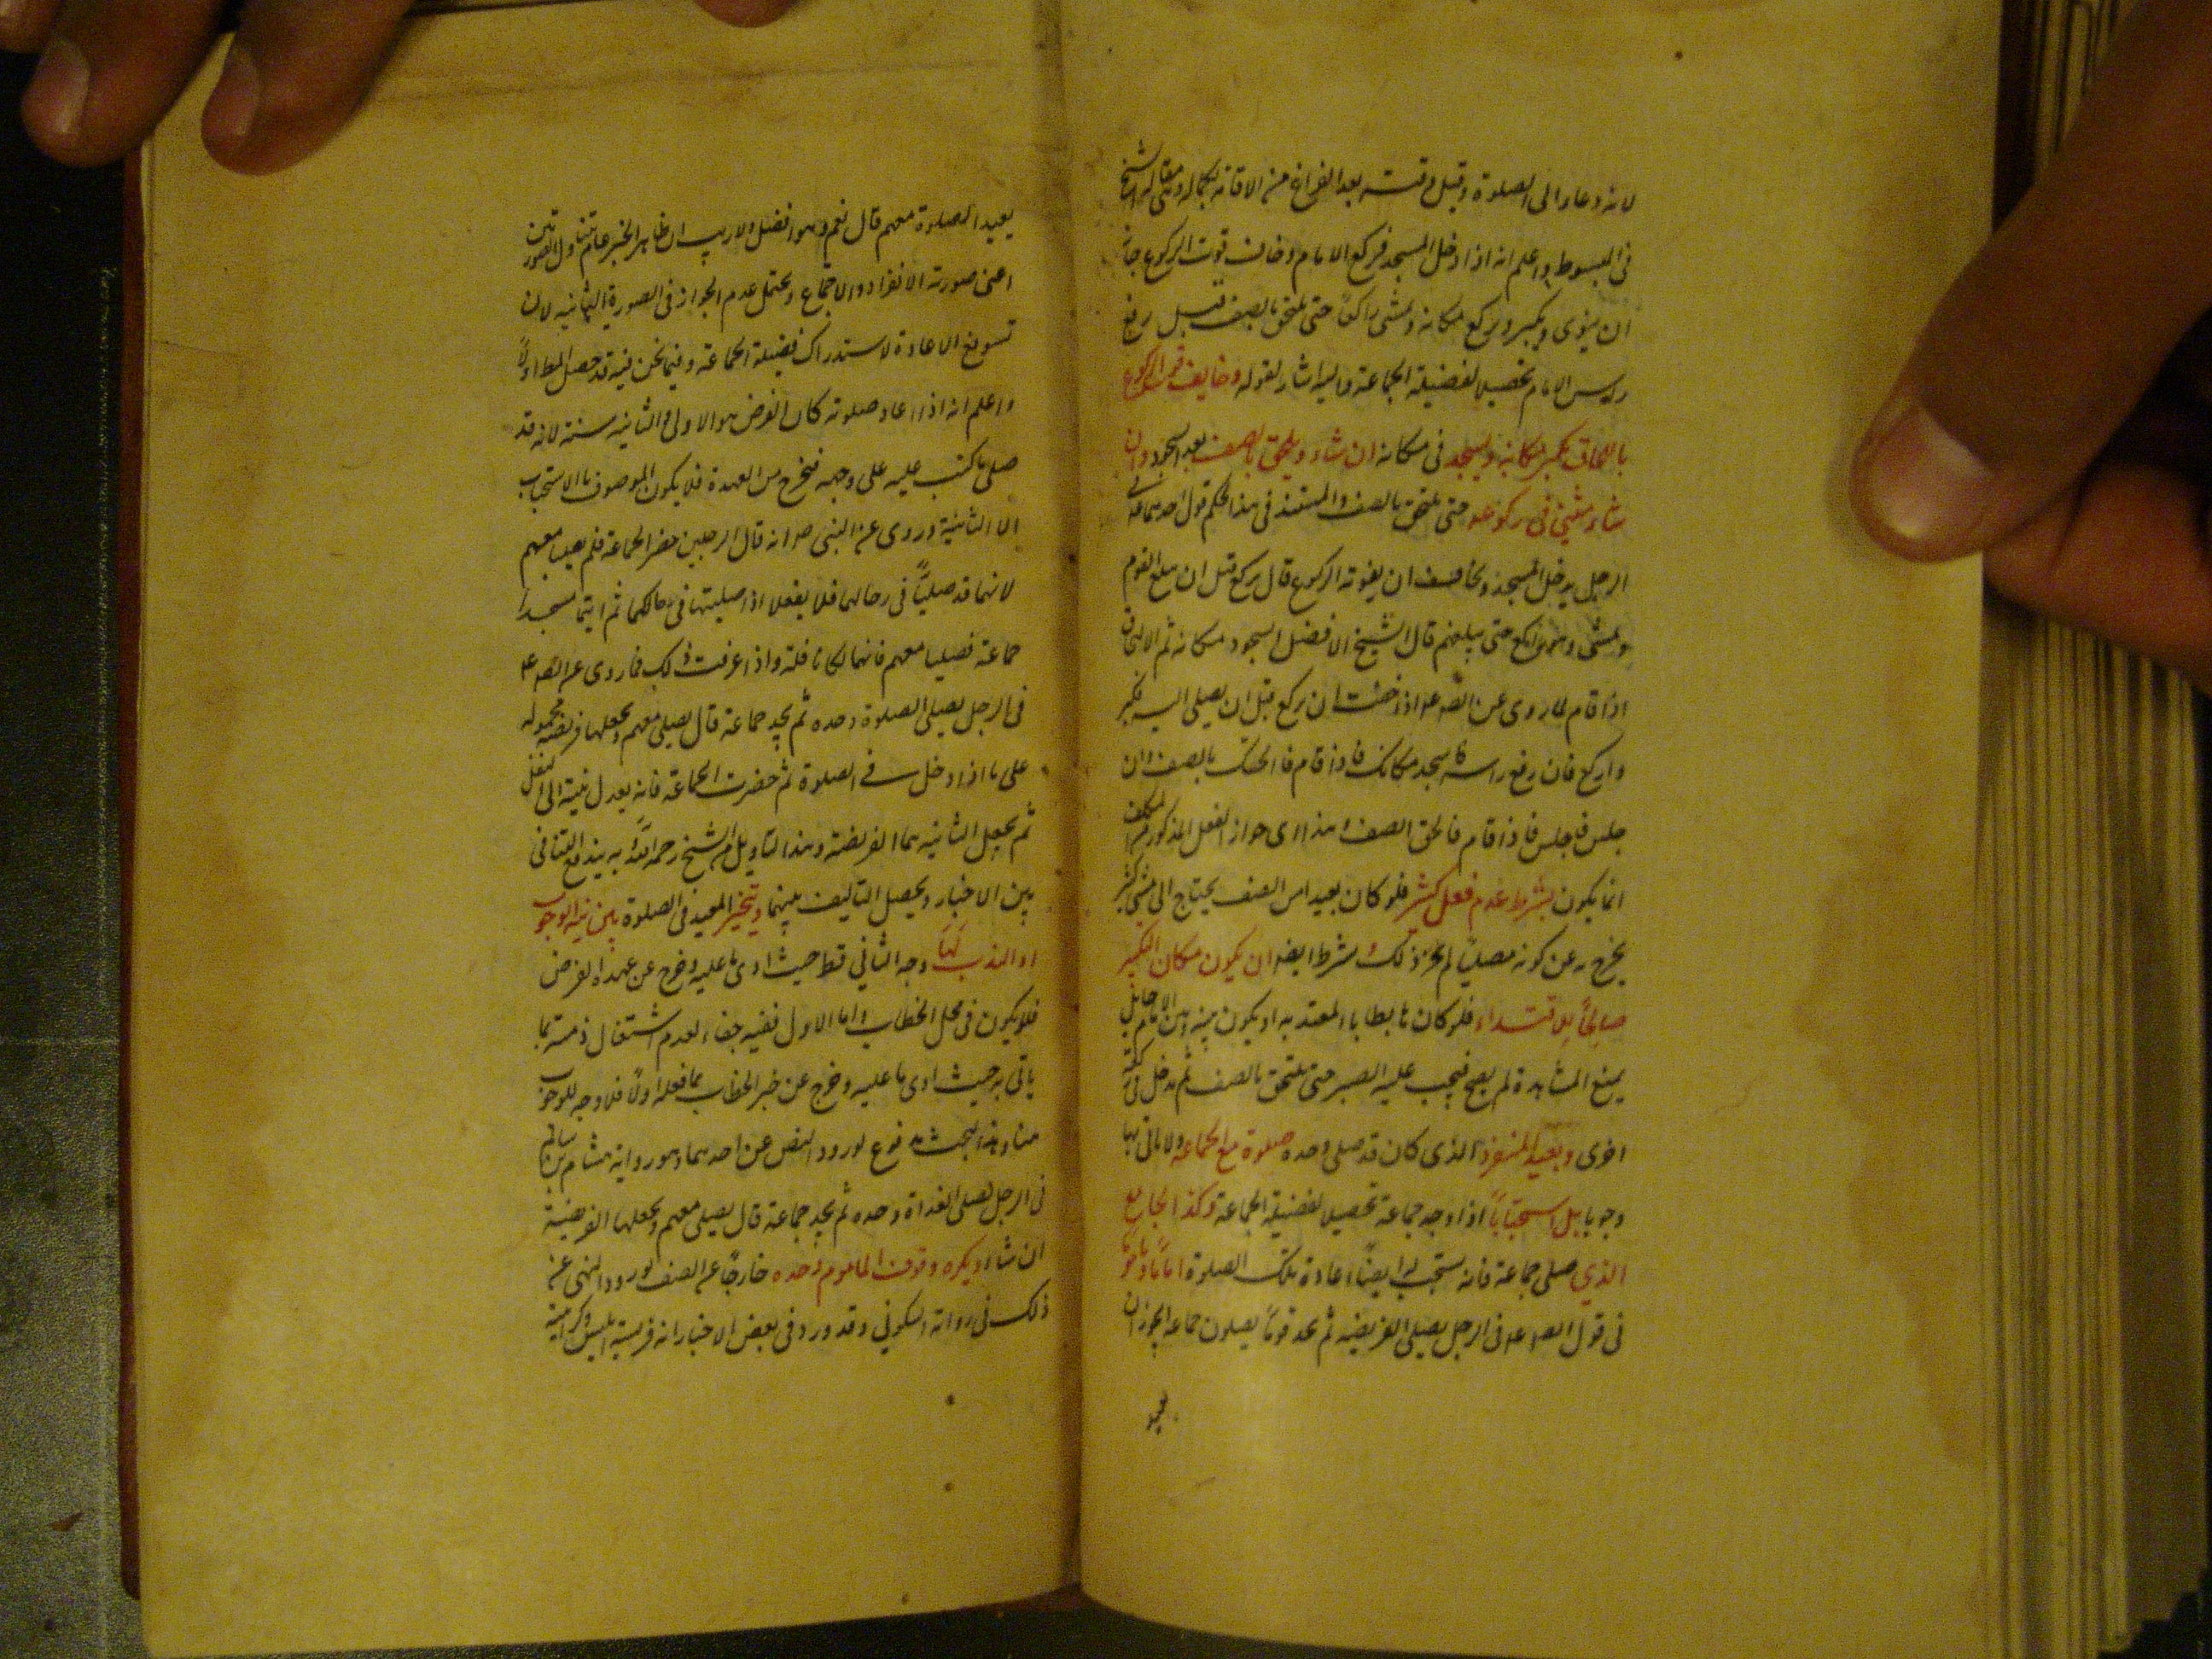 لانه دعاء الى الصلوة وقيل وقته بعد الفراغ من الاقامة بكماله وهى مقالة الشيخ
فى المبسوط واعلم انه اذا دخل المسجد فركع الامام وخاف فوت الركوع جاز
ان ينوى ويكبر ويركع مكانه ويمشى راكعا حتى يلتحق بالصف قبل رفع
راس الامام تحصيلا لفضيلة الجماعة واليه اشار بقوله وخايف فوت الركوع
بالالحاق يكبر مكانه ويسجد فى مكانه ان شاء ويلتحق بالصف بعد السجود وان
شاء مشى فى ركوعه حتى يلتحق بالصف والمستند فى هذا الحكم قول احدهما ع فى
الرجل يدخل المسجد ويخاف ان يفوته الركوع قال يركع قبل ان يبلغ القوم
ويمشى وهو راكع حتى يبلغهم قال الشيخ الافضل السجود مكانه ثم الالتحاق
اذا قام لما روى عن الصه ع اذا خشت ان يركع قبل ان يصلى اليه فكبر
واركع فان رفع راسه فاسجد مكانك فاذا قام فالحق بالصف وان
جلس فاجلس فاذا قام فالحق الصف وهذا اى جواز الفعل المذكور للمكلف
انما يكون بشرط عدم فعل كثير فلو كان بعيدا من الصف يحتاج الى مشى كثير
يخرج به عن كونه مصليا لم يجز ذلك وشرط ايضا ان يكون مكان التكبير
صالحا للاقتداء فلو كان هابطا بالمعتد به او يكون بينه وبين الامام حايل
يمنع المشاهدة لم يصح فيجب عليه الصبر حتى يلتحق بالصف ثم يدخل فى ركعة
اخرى ويعيد المنفرد الذى كان قد صلى وحده صلوة مع الجماعة ولا ياتى بها
وجوبا بل استحبابا اذا وجد جماعة تحصيلا لفضيلة الجماعة وكذا الجامع
الذى صلى جماعة فانه يستحب له ايضا اعادة تلك الصلوة اماما وماموما
فى قول الصه ع فى الرجل يصلى الفريضة ثم يجد قوما يصلون جماعة ايجوز ان
يعيد
يعيد الصلوة معهم قال نعم وهو افضل ولا ريب ان ظاهر الخبر عام يتناول الصورتين
اعنى صورة الانفراد والاجتماع ويحتمل عدم الجواز فى الصورة الثانية لان
تسويغ الاعادة لاستدراك فضيلة الجماعة وفيما نحن فيه قد حصل المط اولا
واعلم انه اذا اعاد صلوته كان الفرض هو الاولى والثانية سنة لانه قد
صلى ما كتب عليه على وجهه فخرج من العهدة فلا يكون الموصوف بالاستحباب
الا الثانية وروى عن النبى ص انه قال لرجلين حضرا الجماعة فلم يصليا معهم
لانهما قد صليا فى رحالهما فلا يفعلا اذا صليتما فى رحالكما ثم اتيتما مسجد
جماعة فصليا معهم فانها لكما نافلة واذا عرفت ذلك فما روى عن الصه ع
فى الرجل يصلى الصلوة وحده ثم يجد جماعة قال يصلى معهم ويجعلها فريضة محمولة
على ما اذا دخل فى الصلوة ثم حضرت الجماعة فانه يعدل بنيته الى النفل
ثم يجعل الثانية هى الفريضة وهذا التاويل من الشيخ رحمه الله به يندفع التنافى
بين الاخبار ويحصل التاليف بينها ويتخير المعيد فى الصلوة بين نية الوجوب
او الندب لها وجه الثانى قط حيث ادى ما عليه وخرج عن عهدة الفرض
فلا يكون فى محل الخطاب واما الاول ففيه خفاء لعدم اشتغال ذمته بما
ياتى به حيث ادى ما عليه وخرج عن خبر الخطاب بما فعله اولا فلا وجه للوجوب
هنا وهذا البحث مدفوع لورود النص عن احدهما وهو رواية هشام بن سالم
فى الرجل يصلى الغداة وحده ثم يجد جماعة قال يصلى معهم ويجعلها الفريضة
ان شاء ويكره وقوف الماموم وحده خارجا عن الصف لورود النهى عن
ذلك فى رواية السكونى وقد ورد فى بعض الاخبار انه فريسة ابليس وكراهية